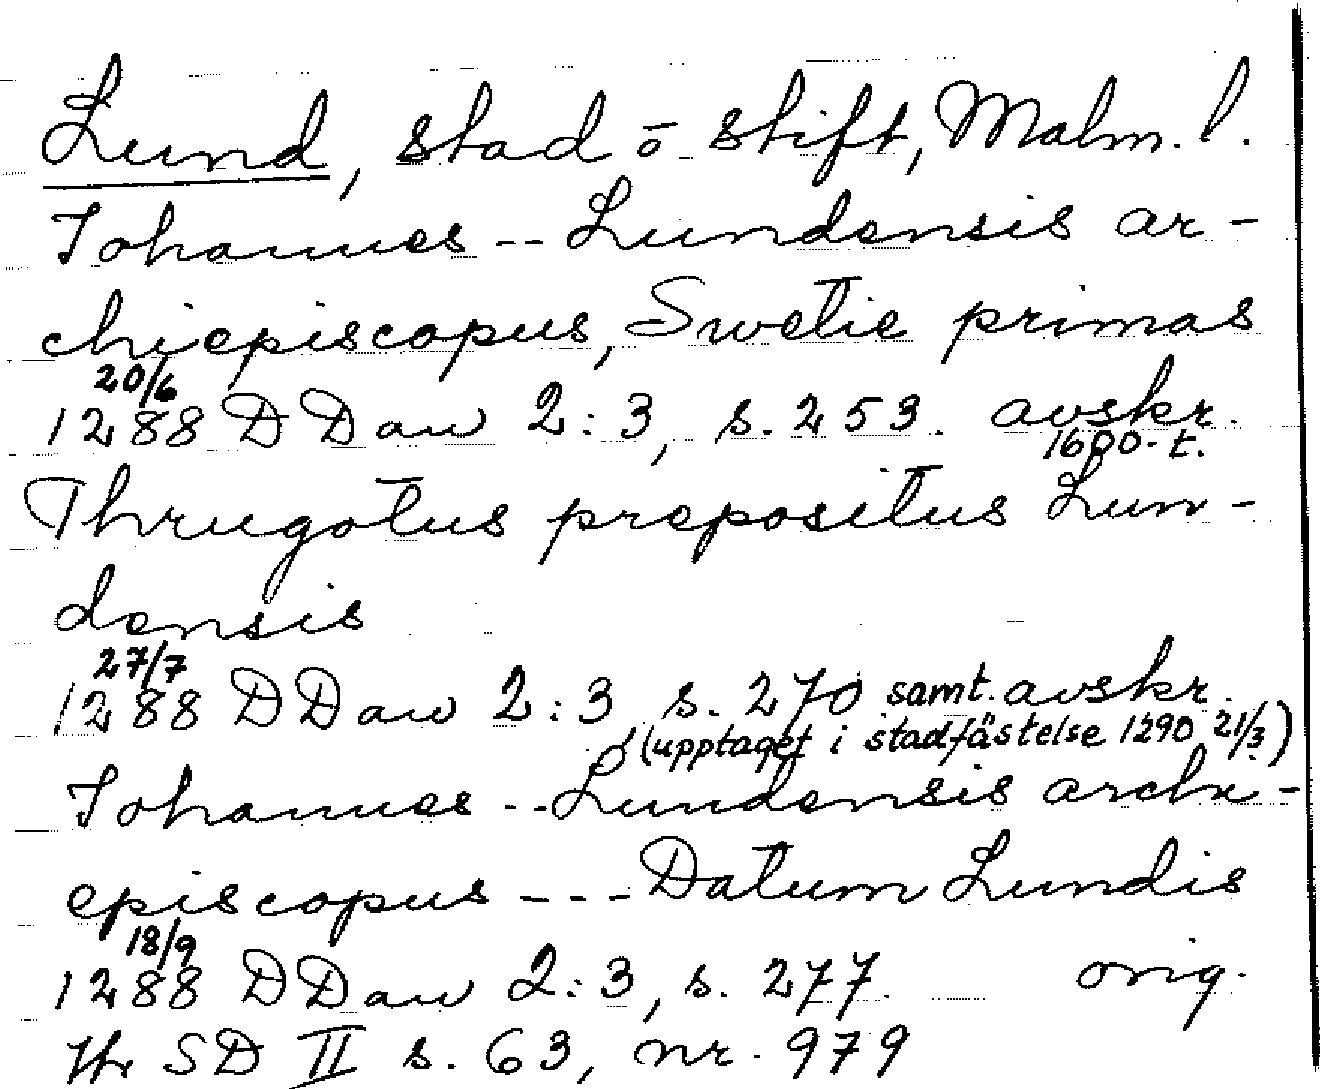 Lund, stad o. stift, Malm. l.
Johannes -- Lundensis ar-
chiepiscopus, Swetie primas
20/6
1288 DDan 2:3, s. 253. avskr.
1600-t.
Thrugotus prepositus Lun-
densis
27/7
1288 DDan 2:3 s. 270 samt. avskr.
(upptaget i stadfästelse 1290 21/3)
Johannes -- Lundensis archi-
episcopus --- Datum Lundis
18/9
1288 DDan 2:3, s. 277. orig.
SD II s. 63, nr. 979